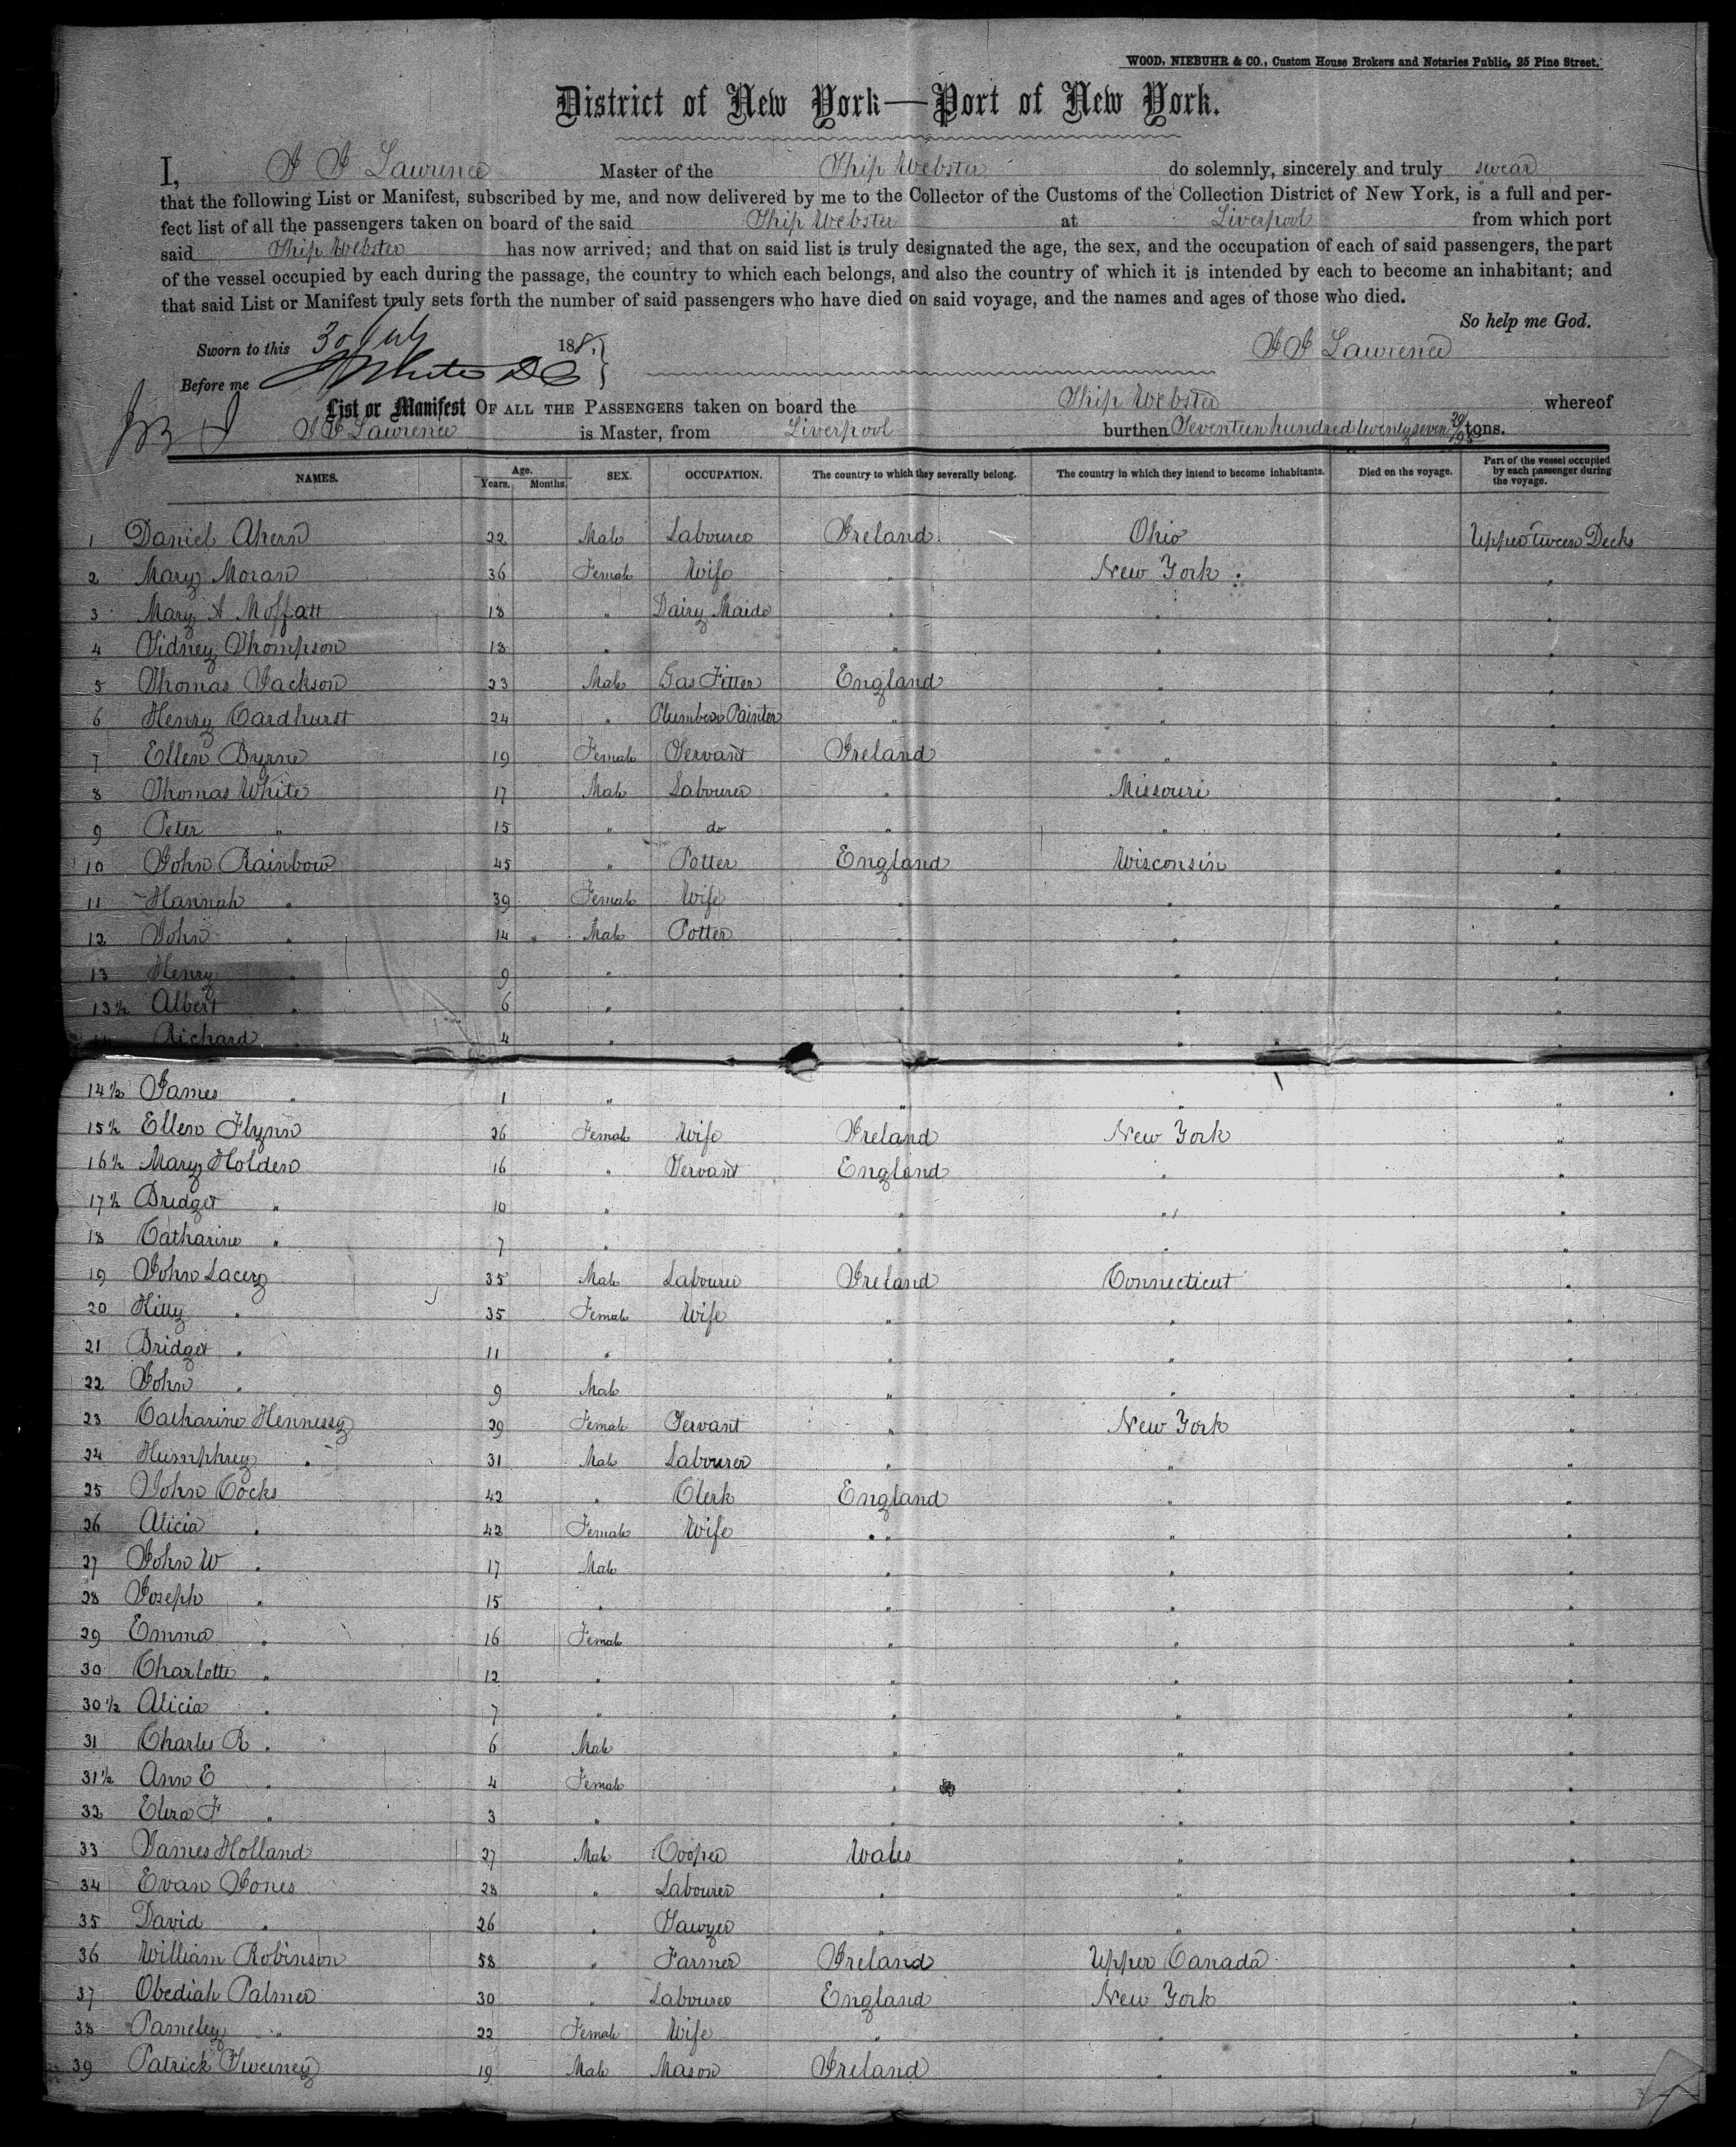 WOOD, NIEBUHR & CO., Custom House Brokers and Notaries Public, 25 Pine Street.
District of New York—Port of New York.
I, J J Lawrence Master of the Ship Webster do solemnly, sincerely and truly swear
that the following List or Manifest, subscribed by me, and now delivered by me to the Collector of the Customs of the Collection District of New York, is a full and per-
fect list of all the passengers taken on board of the said Ship Webster at Liverpool from which port
said Ship Webster has now arrived; and that on said list is truly designated the age, the sex, and the occupation of each of said passengers, the part
of the vessel occupied by each during the passage, the country to which each belongs, and also the country of which it is intended by each to become an inhabitant; and
that said List or Manifest truly sets forth the number of said passengers who have died on said voyage, and the names and ages of those who died.
So help me God.
Sworn to this 30 July 18
J J Lawrence
Before me
List or Manifest OF ALL THE PASSENGERS taken on board the Ship Webster whereof
J J Lawrence is Master, from Liverpool burthen Seventeen hundred twenty seven tons.
NAMES. Age. Years. Months. SEX. OCCUPATION. The country to which they severally belong. The country in which they intend to become inhabitants. Died on the voyage. Part of the vessel occupied by each passenger during the voyage.
1 Daniel Ahern 22 Male Labourer Ireland Ohio Upper tween Decks
2 Mary Moran 36 Female Wife " New York "
3 Mary A Moffatt 18 " Dairy Maide " " "
4 Sidney Thompson 18 " " " "
5 Thomas Jackson 23 Male Gas Fitter England " "
6 Henry Cardhurst 24 " Plumber Painter " " "
7 Ellen Byrne 19 Female Servant Ireland " "
8 Thomas White 17 Male Labourer " Missouri "
9 Peter " 15 " do " " "
10 John Rainbow 45 " Potter England Wisconsin "
11 Hannah " 39 Female Wife " " "
12 John " 14 Male Potter " " "
13 Henry " 9 " " " "
13½ Albert " 6 " " " "
14 Richard " 4 " " " "
14½ James " 1 " " " "
15½ Ellen Flynn 26 Female Wife Ireland New York "
16½ Mary Holden 16 " Servant England " "
17½ Bridget " 10 " " " "
18 Catharine " 7 " " " "
19 John Lacey 35 Male Labourer Ireland Connecticut "
20 Kitty " 35 Female Wife " " "
21 Bridget " 11 " " " "
22 John " 9 Male " " "
23 Catharine Hennessy 29 Female Servant " New York "
24 Humphrey " 31 Male Labourer " " "
25 John Cocks 42 " Clerk England " "
26 Alicia " 42 Female Wife " " "
27 John W " 17 Male " " "
28 Joseph " 15 " " " "
29 Emma " 16 Female " " "
30 Charlotte " 12 " " " "
30½ Alicia " 7 " " " "
31 Charles R " 6 Male " " "
31½ Ann E " 4 Female " " "
32 Eliza F " 3 " " " "
33 James Holland 27 Male Cooper Wales " "
34 Evan Jones 28 " Labourer " " "
35 David " 26 " Sawyer " " "
36 William Robinson 58 " Farmer Ireland Upper Canada "
37 Obediah Palmer 30 " Labourer England New York "
38 Pameley " 22 Female Wife " " "
39 Patrick Sweeney 19 Male Mason Ireland " "